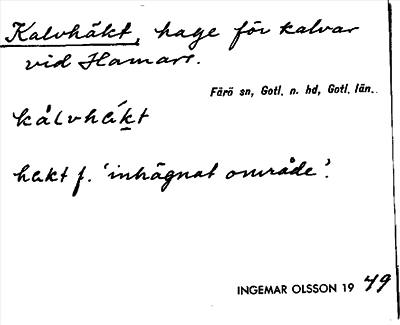 Kalvhäkt, hage för kalvar
vid Hamars.
Fårö sn, Gotl. n. hd, Gotl. län.
kålvhäkt
häkt f. 'inhägnat område'.
INGEMAR OLSSON 19 49